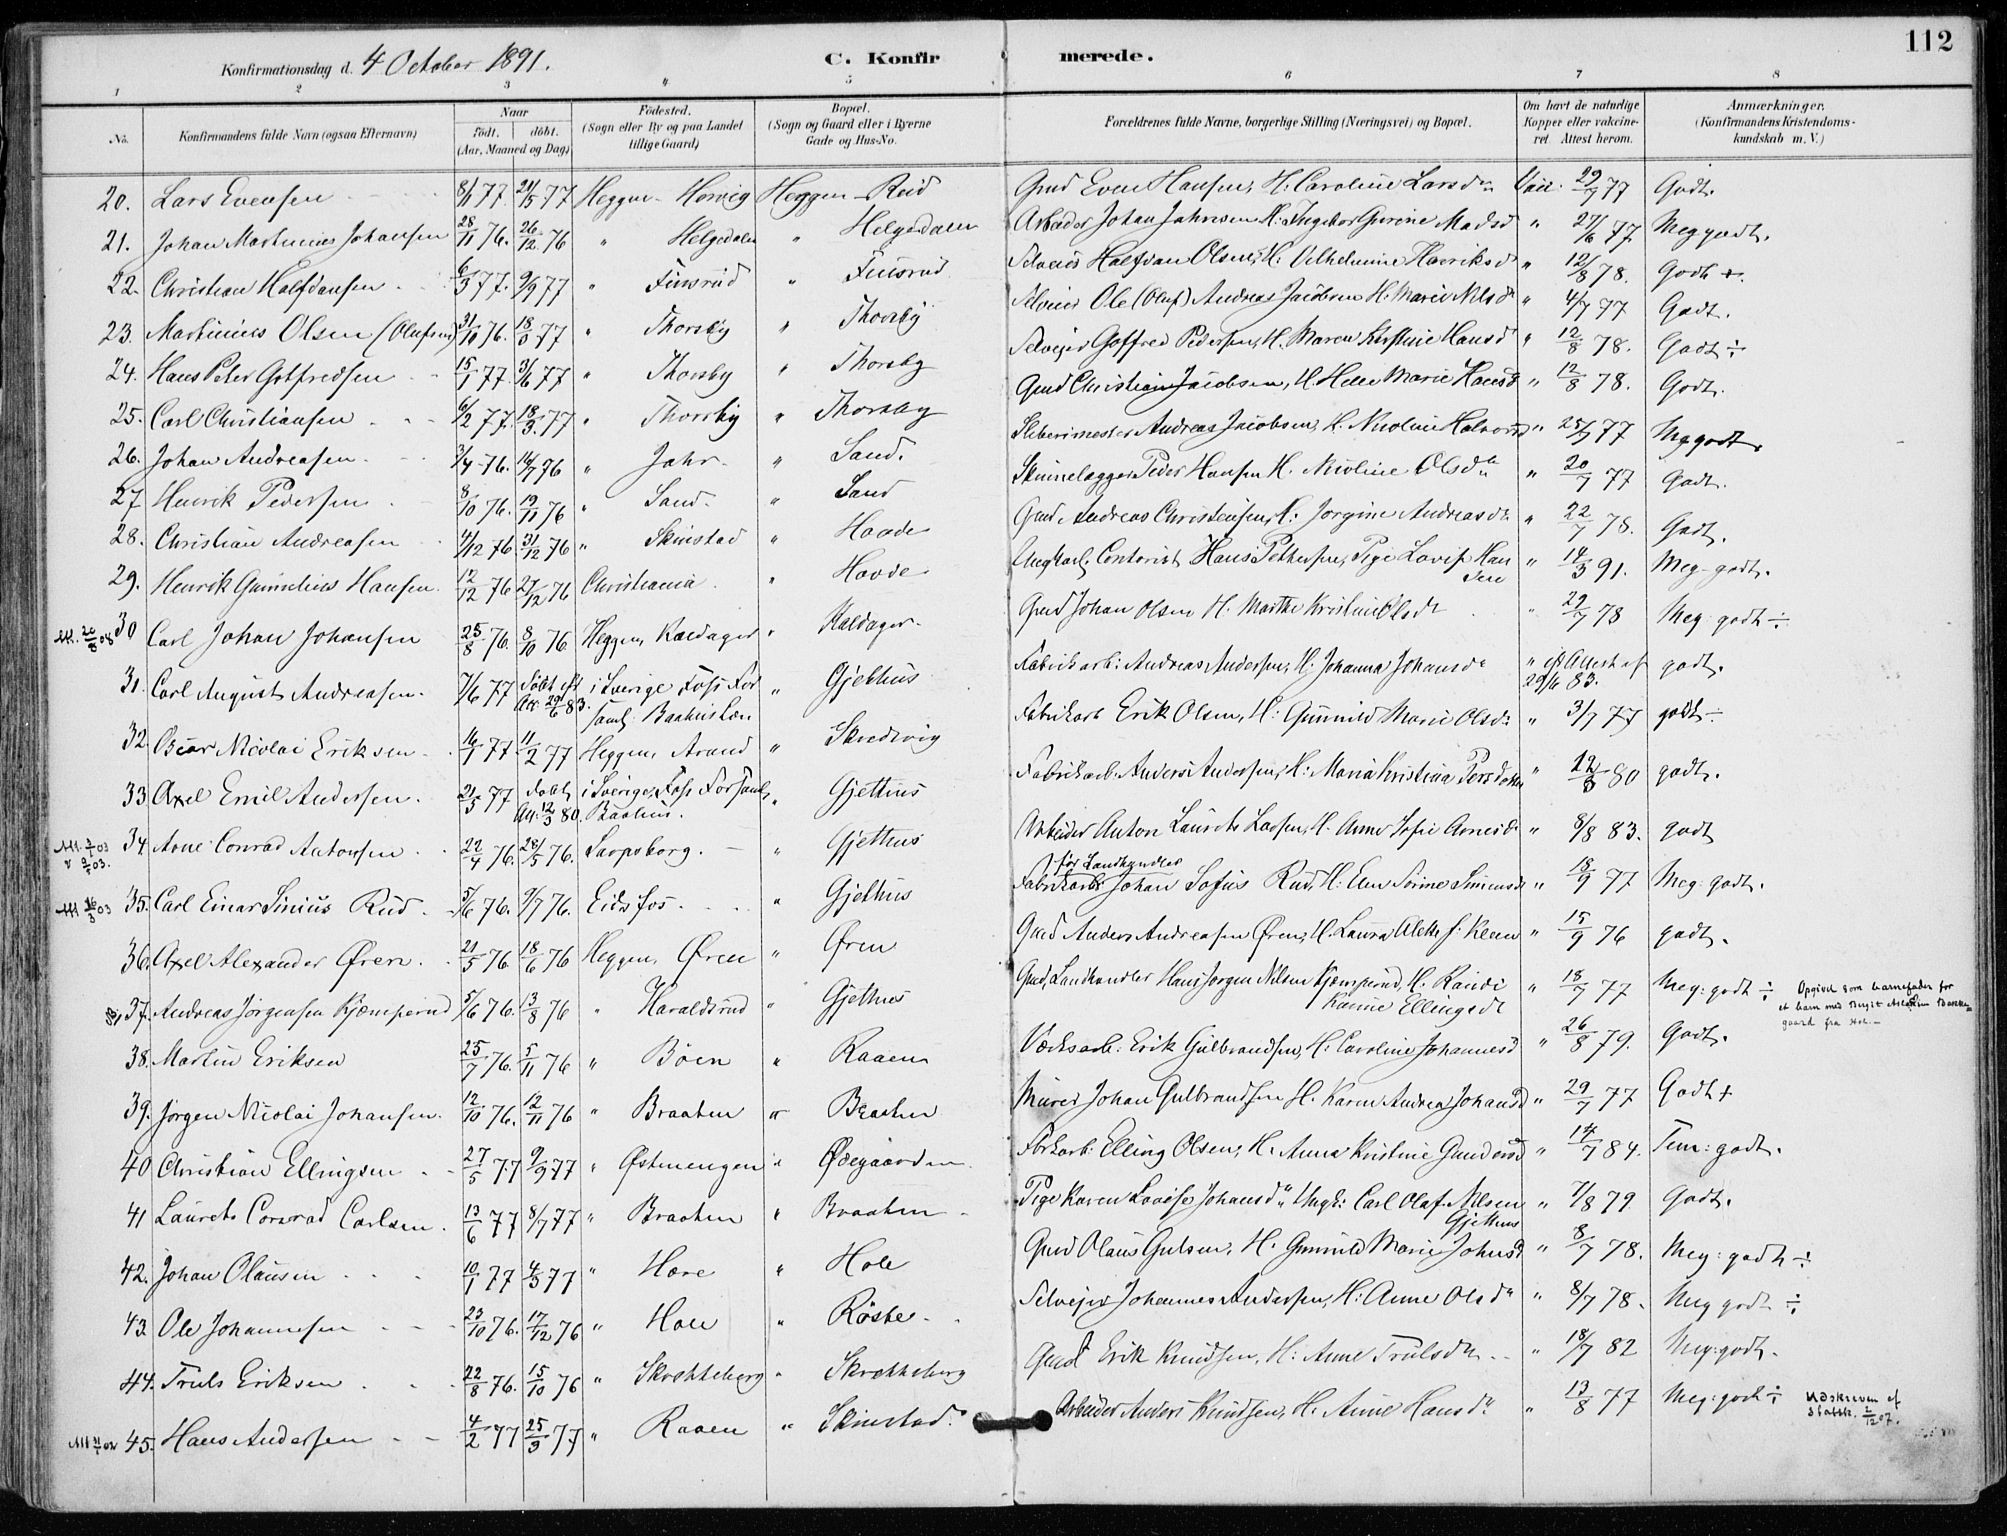 112
Konfirmationsdag d. 4 October 1891.
C. Konfirmerede.
1 2 3 4 5 6 7 8
No. Konfirmandens fulde Navn (ogsaa Efternavn) Naar födt. döbt. (Aar, Maaned og Dag) Födested. (Sogn eller By og paa Landet tillige Gaard) Bopæl. (Sogn og Gaard eller i Byerne Gade og Hus-No. Forældrenes fulde Navne, borgerlige Stilling (Næringsvei) og Bopæl. Om havt de naturlige Kopper eller vaccineret. Attest herom. Anmærkninger. (Konfirmandens Kristendomskundskab m. V.)
20. Lars Evensen 8/1 77. 77 Heggen Heggen Gmd Even Hansen, H. Caroline Larsd. Vacc. 29/7 77 Godt.
21. Johan Martinius Johansen 28/11 76. 26/12 76 " Helgedalen " Helgedalen Arbeider Johan H. Ingebor Gurine Madsd " 27/6 77 Meg godt.
22. Christian Halfdansen 6/3 77. 9/9 77 " Finsrud " Finsrud Selveier Halfdan Olsen, H. Vilhelmine Henriksd " 12/8 78. Godt +.
23. Martinius Olsen (Olufsen) 31/10 76. 18/3 77 " Thorsby " Thorsby Selveier Ole (Oluf) Andreas Jacobsen H. Marie Nilsd " 4/7 77 Godt.
24. Hans Peter Gotfredsen 15/1 77. 3/6 77 " Thorsby " Thorsby Selveier Gotfred Pedersen, H. Maren Kirstine Hansd " 12/8 78. Godt ÷
25. Carl Christiansen 6/2 77. 18/3 77 " Thorsby " Thorsby Gmd Christian Jacobsen, H. Helene Marie Hansd " 12/8 78. Godt.
26. Johan Andreasen 3/4 76. 16/7 76 " Jahr. " Sand. Sliberimester Andreas Jacobsen, H. Nicoline Halvorsd " 25/7 77 Meg godt
27 Henrik Pedersen 8/10 76. 19/11 76 " Sand. " Sand Skinnelægger Peder Hansen H. Nicoline Olsd. " 20/7 77 Godt.
28. Christian Andreasen 4/12 76 31/12 76 " Skinstad " Hovde Gmd. Andreas Christensen, H. Jorgine Andreasd. " 22/7 78. Godt.
29. Henrik Hansen. 12/12 76 27/12 76 Christiania " Hovde Ungkarl, Contorist Hans Pettersen, Pige Lovise Hansen " 14/3 91. Meg-godt.
30 Carl Johan Johansen 25/8 76. 8/10 76. Heggen, Kaldager " Kaldager. Gmd Johan Olsen H. Marthe Kristine Olsd. " 29/7 78 Meg: godt ÷
31. Carl August Andreasen. 7/6 77 Född att. 29/6 83. i Sverige, Foss Forsaml: Baahus Læn " Gjethus Fabrikarb: Andreas Andersen, H. Johanna Johansd. " Attest af 29/6 83. godt.
32. Oscar Nicolai Eriksen 16/1 77 11/2 77 Heggen, " Skredsvig Fabrikarb Erik Olsen, H. Gunnild Marie Olsd. " 3/7 77 godt ÷
33 Axel Emil Andersen. 21/5 77 Född Att. 12/3 80. i Sverige, Foss Forsaml. Baahus. " Gjethus Fabrikarb. Anders Andersen, H. Maria Kristina Persdotter " 12/3 80 godt.
34 Arne Conrad Antonsen 22/4 76. 28/5 76. Sarpsborg. " Gjethus Arbeider Anton Laurits Larsen, H. Anne Sofie Arnesd. " 8/8 83. godt
35. Carl Einar Sinius Rud 5/6 76. 9/7 76. Eidsfos. " Gjethus för Landhandler Fabrikarb. Johan Sofus Rud, H. Elen Sorine Simensd " 18/9 77 Meg: godt.
36. Axel Alexander Øren 21/5 76 18/6 76 Heggen, Øren " Øren Gmd Anders Andreasen Øren, H. Laura " 15/9 76 godt.
37. Andreas Jörgensen Kjæmperud 5/6 76. 13/8 76 " Haraldsrud " Gjethus Gmd, Landhandler Hans Jörgen Nilsen Kjæmperud, H. Randi Karine Ellingsd. " 18/7 77 Meg: godt ÷ Opgivet som barnefader for et barn med Birgit fra Hol.
38. Martin Eriksen 25/7 76. 5/11 76 " Böen " Raaen Værksarb: Erik Gulbrandsen, H. Caroline Johannesd " 26/8 79. Godt.
39. Jörgen Nicolai Johansen. 12/10 76. 12/11 76 " Braaten " Braaten Murer Johan Gulbrandsen H. Karen Andrea Johansd " 29/7 77 Godt +
40 Christian Ellingsen 27/5 77 9/9 77 " Østmengen " Ødegaarden Elling Olsen, H. Anna Kristine Gundersd " 14/7 84. Tem: godt.
41 Laurets Conrad Carlsen. 13/6 77 8/7 77 " Braaten " Braaten Pige Karen Lovise Johansd. Ungk: Carl Olaf Nilsen Gjethus " 7/8 79. Godt.
42. Johan Olausen 10/1 77 4/3 77 " Hære " Hole Gmd Olaus Gulsen, H. Gunnild Marie Johnsd. " 8/7 78. Meg: godt ÷
43 Ole Johannesen 23/10 76. 17/12 76 " Hole " Röste Selveier Johannes Andersen, H. Anne Olsd. " 8/7 78. Meg godt ÷
44. Truls Eriksen 22/8 76. 15/10 76 " Skrætteberg " Skrætteberg Gmd Erik Knudsen, H. Anne Trulsd. " 18/7 82 Meg: godt.
45. Hans Andersen 4/2 77 25/3 77 " Raaen " Skinstad. Arbeider Anders Knudsen, H. Anne Hansd. " 13/8 77 Meg: godt ÷ Udskreven af statsk. 2/12 07.